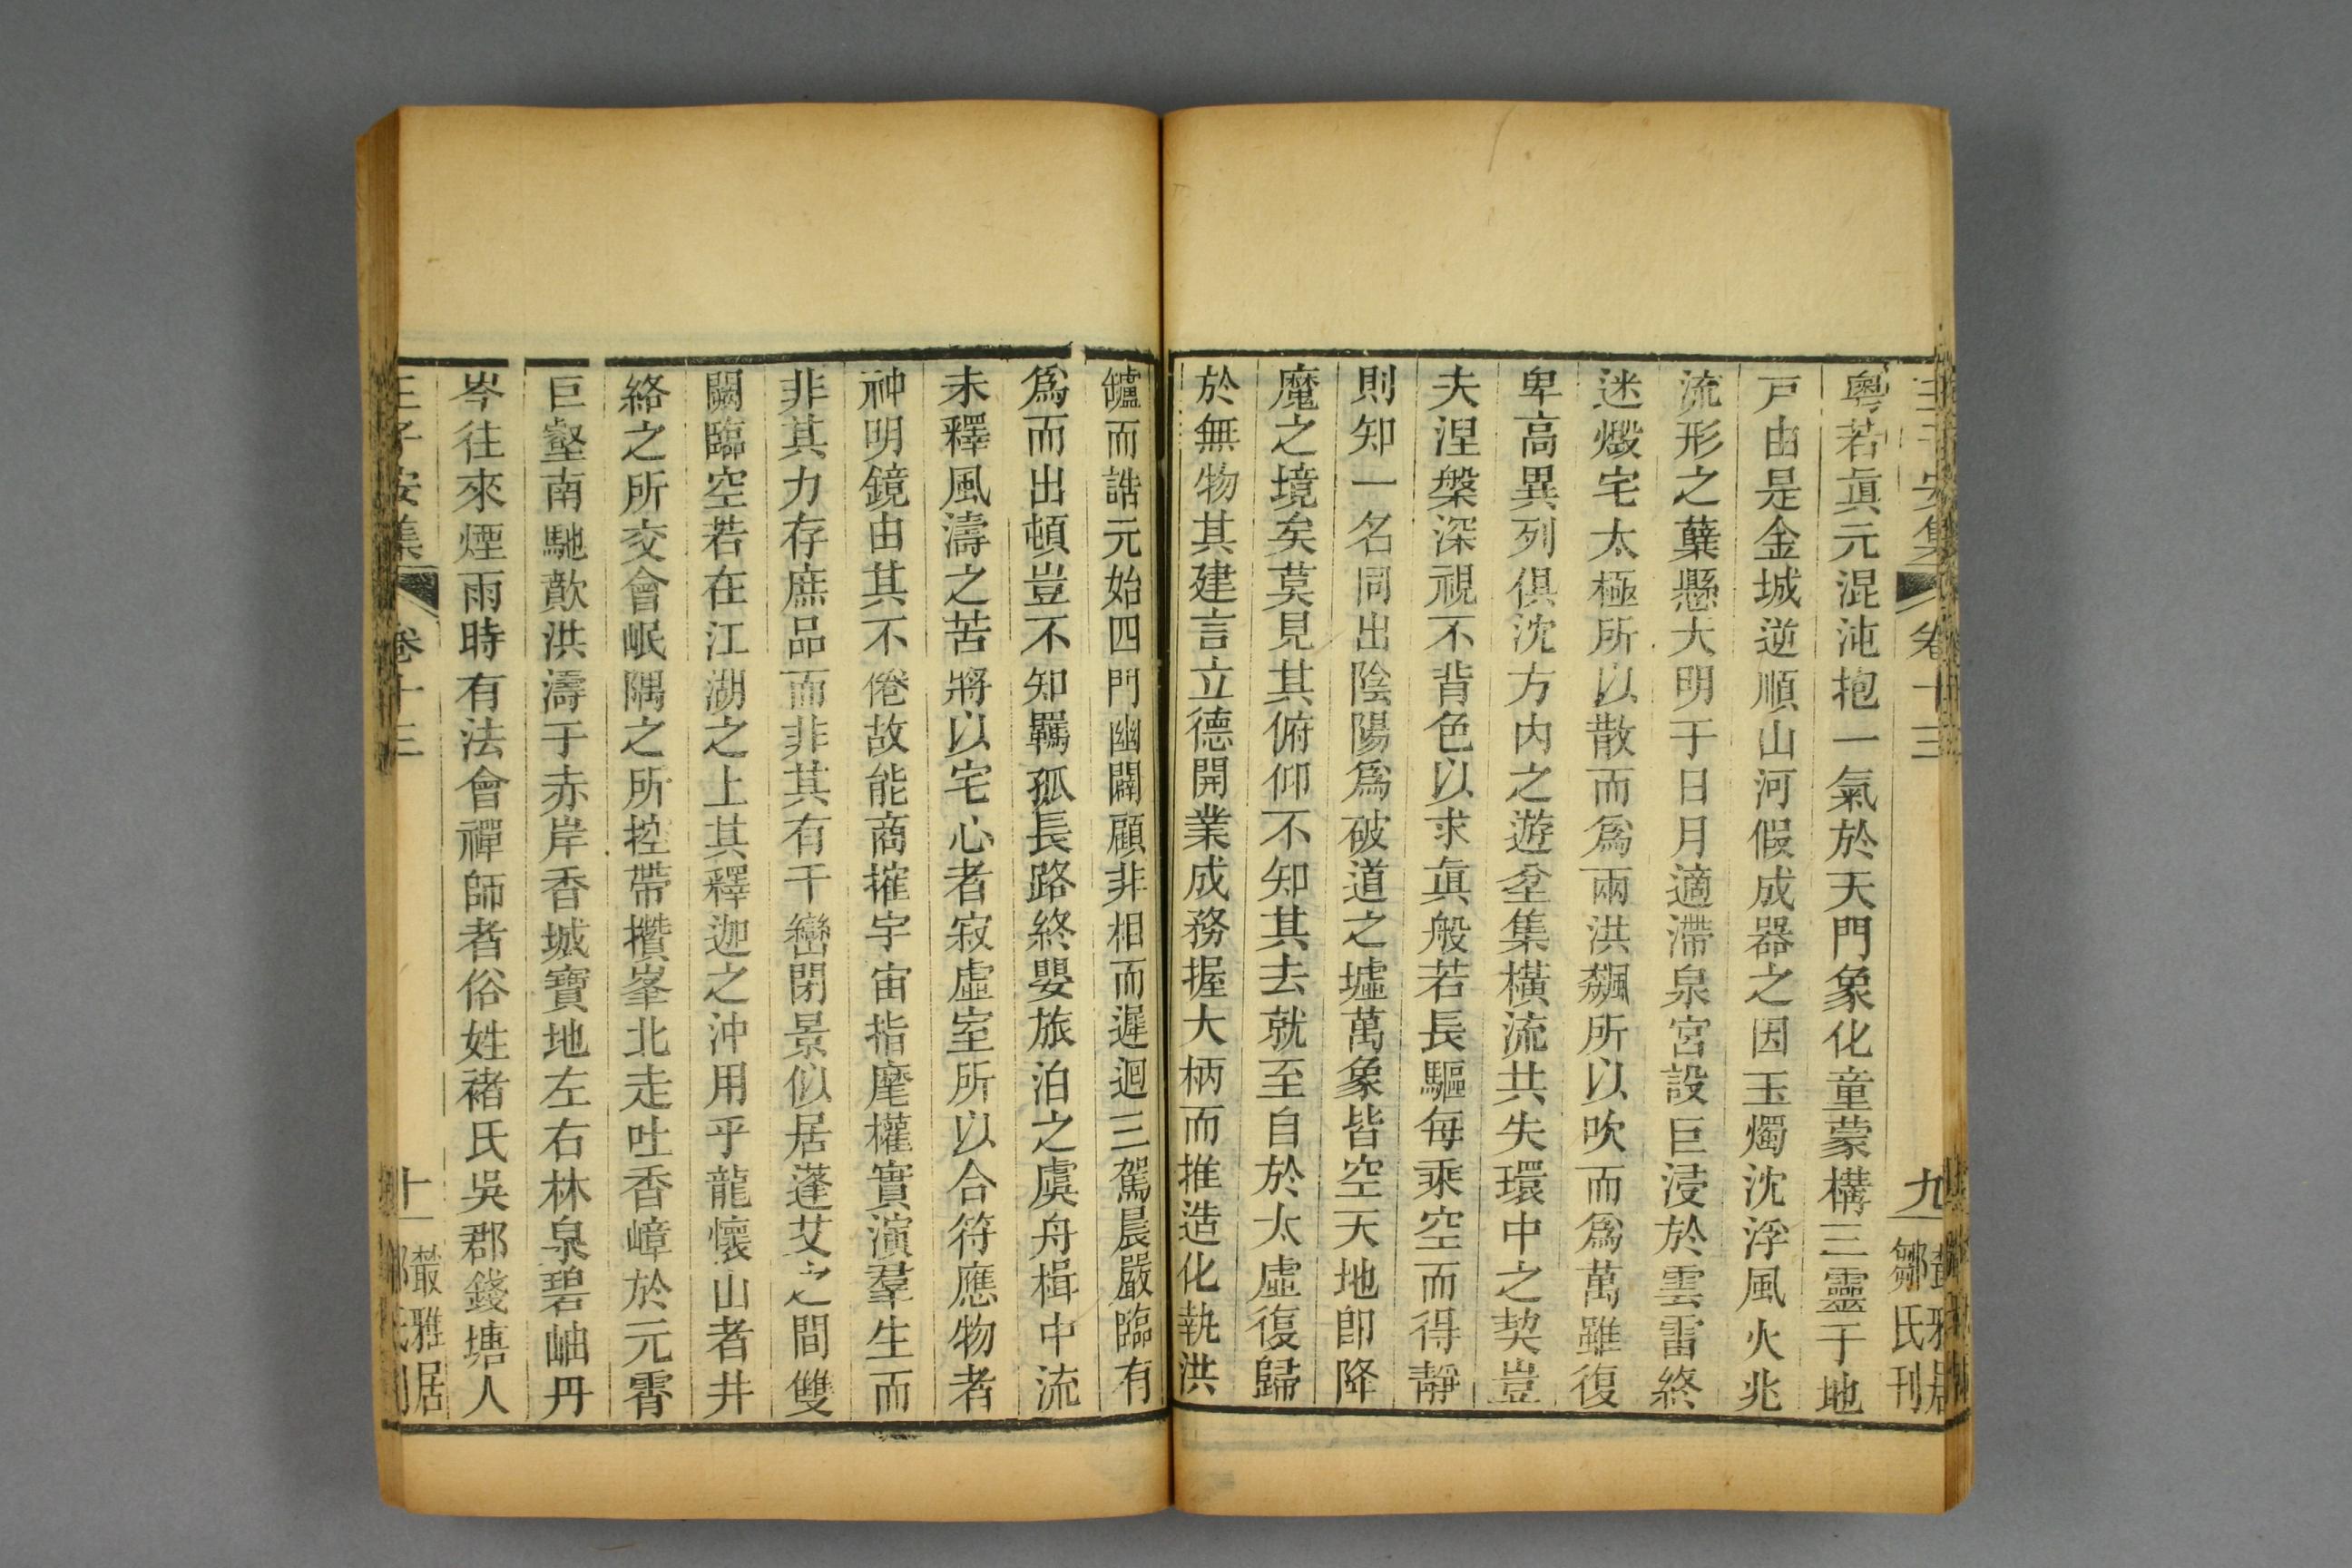 王子安集 卷十三 九 叢雅居鄒氏刊
粵若眞元混沌抱一氣於天門象化童蒙構三靈于地
戸由是金城逆順山河假成器之因玉燭沈浮風火兆
流形之蘖懸大明于日月適滯泉宮設巨浸於雲雷終
迷燬宅太極所以散而爲兩洪飆所以吹而爲萬雖復
卑高異列俱沈方内之遊坌集橫流共失環中之契豈
夫涅槃深視不背色以求眞般若長驅每乘空而得靜
則知一名同出陰陽爲破道之墟萬象皆空天地卽降
魔之境矣莫見其俯仰不知其去就至自於太虛復歸
於無物其建言立德開業成務握大柄而推造化執洪
罏而誥元始四門幽闢顧非相而遲迴三駕晨嚴臨有
爲而出頓豈不知羈孤長路終嬰旅泊之虞舟楫中流
未釋風濤之苦將以宅心者寂虛室所以合符應物者
神明鏡由其不倦故能商搉宇宙指麾權實演羣生而
非其力存庶品而非其有干巒閉景似居蓬艾之間雙
闕臨空若在江湖之上其釋迦之沖用乎龍懷山者井
絡之所交會岷隅之所控帶攢峯北走吐香嶂於元霄
巨壑南馳歕洪濤于赤岸香城寶地左右林泉碧岫丹
岑往來煙雨時有法會禪師者俗姓褚氏吳郡錢塘人
王子安集 卷十三 十 叢雅居鄒氏刊